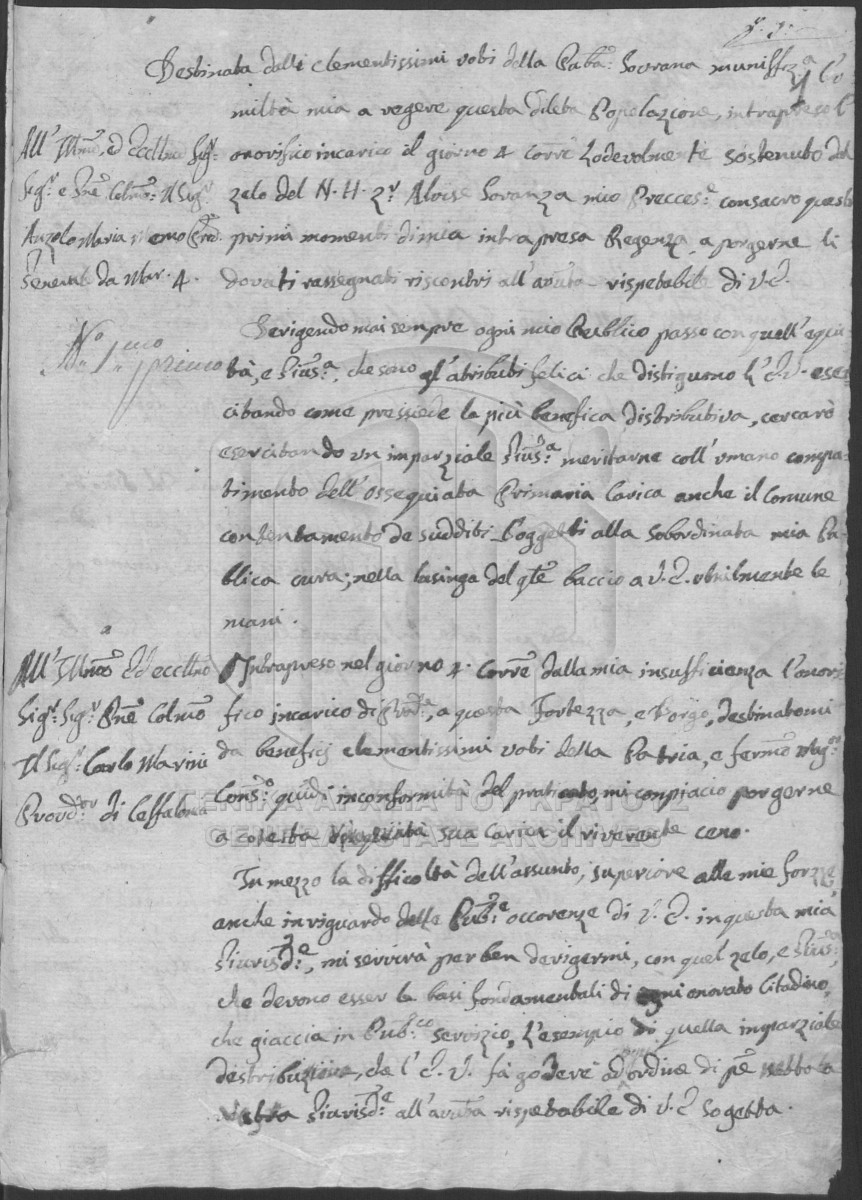 Destinata dalli clementissimi voti della Pub.ca Sovrana muniffiz.a l'u
miltà mia a regere questa diletta Popolazione, intrapreso l'
onorifico incarico il giorno 4 corr.e lodevolmente sostenuto dal
zelo del N. H. Z.r Aloise Soranza mio Precces.e consacro questi
primi momenti di mia intrapresa Regenza a porgerne li
dovuti rassegnati riscontri all'autta rispetabile di V. E.
All' Illmo, ed Eccellmo Sig.r
Sig.r e Pne Colmo: Il Sig.r
Anzolo Maria Memo Prod.r
General da Mar. 4.
N.o 1.mo
primo
Derigendo mai sempre ogni mio Publico passo con quell'equi
tà, e Gius.a, che sono gl'atributi felici che distiguono l'E. V. eser
citando come pressiede la più benefica distributiva, cercarò
esercitando un imparziale Gius.a meritarne coll'umano compa
timento dell'ossequiata Primaria Carica anche il Comune
contentamento de sudditi soggetti alla sobordinata mia Pu
blica cura; nella lusinga del qte baccio a V. E. umilmente le
mani.
All' Illmo ed eccellmo
Sig.r Sig.r Pne Colmo
Il Sig.r Carlo Marini
Provd.or di Ceffalonia
Intrapreso nel giorno 4. Corre dalla mia insufficienza l'onori
fico incarico di Prov.re, a questa Fortezza, e Borgo, destinatomi
da benefici clementissimi voti della Patria, e fermo Mag.r
Cons.o quindi inconformità del praticato, mi conpiacio porgerne
a cotesta sua carica il riverente ceno.
In mezzo la difficoltà dell'assunto, superiore alle mie forze,
anche in riguardo delle Pub.e occorenze di V. E. in questa mia
Giurisd.e, mi servirà per ben derigermi, con quel zelo, e Gius.a,
che devono esser la basi fondamentali di ogni onorato Citadino,
che giaccia in Pub.co servizio, l'esempio di quella inparziale
destribuzione, che l'E. V. fà godere ad ordine di
Giurisd.e all'autta rispetabile di V. E. sogetta.
ΓΕΝΙΚΑ ΑΡΧΕΙΑ ΤΟΥ ΚΡΑΤΟΥΣ
GENERAL STATE ARCHIVES